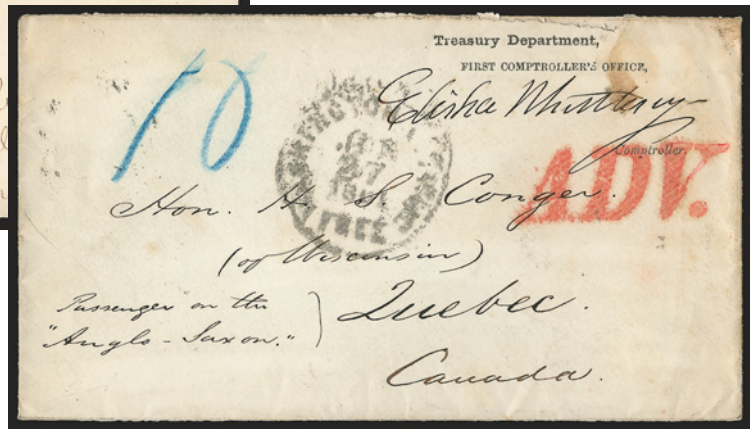 Treasury Department,
FIRST COMPTROLLER'S OFFICE,
Elisha Whittlesey
Comptroller.
10
ADV.
27
FREE
Hon. H. S. Conger.
(of Wisconsin)
Passenger on the
"Anglo-Saxon."
Quebec.
Canada.